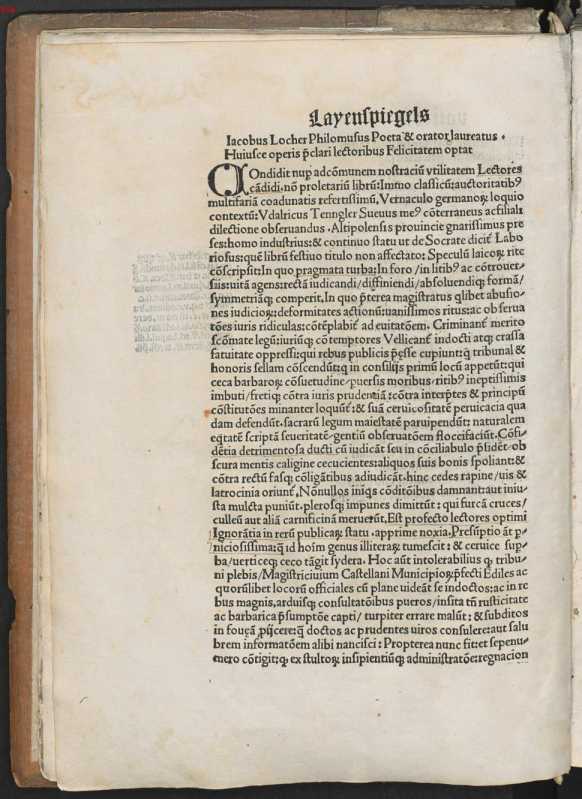 Layenspiegels
Iacobus Locher Philomusus Poeta & orator laureatus.
Huiusce operis p̃clari lectoribus Felicitatem optat
COndidit nuꝑ adcõmunem nostraciũ vtilitatem Lectores
cãdidi. nõ proletariũ librũ: Immo classicũ: auctoritatibꝰ
multifariã coadunatis refertissimũ. Vernaculo germanoꝝ loquio
contextũ: Vdalricus Tenngler Sueuus meꝰ cõterraneus ac filiali
dilectione obseruandus. Altipolensis prouincie gnarissimus pre
ses: homo industrius: & continuo statu ut de Socrate dicit̃ Labo
riosus: quẽ librũ festiuo titulo non affectato: Speculũ laicoꝝ rite
cõscripsit: In quo pragmata turba: In foro / in litibꝰ ac cõtrouer-
sijs: uitã agens: rectã iudicandi / diffiniendi / absoluendiqꝫ formã /
symmetriãqꝫ comperit. In quo p̃terea magistratus qlibet abusio-
nes iudicioꝝ: deformitates actionũ: uanissimos ritus: ac obserua
tões iuris ridiculas: cõtẽplabit̃ ad euitatõem. Criminant̃ merito
scõmate legũ: iuriũqꝫ cõtemptores Vellicant̃ indocti atqꝫ crassa
fatuitate oppressi: qui rebus publicis p̃esse cupiunt: q̃ tribunal &
honoris sellam cõscendũt: q̃ in consilijs primũ locũ appetũt: qui
ceca barbaroꝝ cõsuetudine / puersis moribus / ritibꝰ ineptissimis
imbuti / fretiqꝫ cõtra iuris prudentiã: cõtra interp̃tes & principũ
cõstitutões minanter loquũt̃: & suã ceruicositatẽ peruicacia qua
dam defendũt. sacrarũ legum maiestatẽ paruipendũt: naturalem
eq̃tatẽ scriptã seueritatẽ gentiũ obseruatõem floccifaciũt. Cõfi-
dẽtia detrimentosa ducti cũ iudicãt seu in cõciliabulo p̃sidẽt ob
scura mentis caligine cecucientes: aliquos suis bonis spoliant: &
cõtra rectũ fasqꝫ cõligãtibus adiudicãt. hinc cedes rapine / uis &
latrocinia oriunt̃. Nõnullos iniqꝫ cõditõibus damnant: aut iniu-
sta mulcta puniũt. plerosqꝫ impunes dimittũt: qui furcã cruces /
culleũ aut aliã carnificinã meruerũt. Est profecto lectores optimi
Ignorãtia in rerũ publicaꝝ statu. apprime noxia. Presũptio aũt p-
niciosissima: q̃ id hoĩm genus illiteraꝝ tumescit: & ceruice suꝑ-
ba / uerticeqꝫ ceco tãgit sydera. Hoc aũt intolerabilius qꝫ tribu-
ni plebis / Magistri ciuium Castellani Municipioꝝ p̃fecti Ediles ac
quorũlibet locorũ officiales cũ plane uideãt se indoctos: ac in re
bus magnis, arduisqꝫ consultatõibus pueros / insita tñ rusticitate
ac barbarica p̃sumptõe capti / turpiter errare malũt: & subditos
in foueã ꝓijcere: q̃ doctos ac prudentes uiros consulere: aut salu
brem informatõem alibi nancisci: Propterea nunc fit: et sepenu-
mero cõtigit: qꝫ ex stultoꝝ insipientiũqꝫ administratõe: regnacion